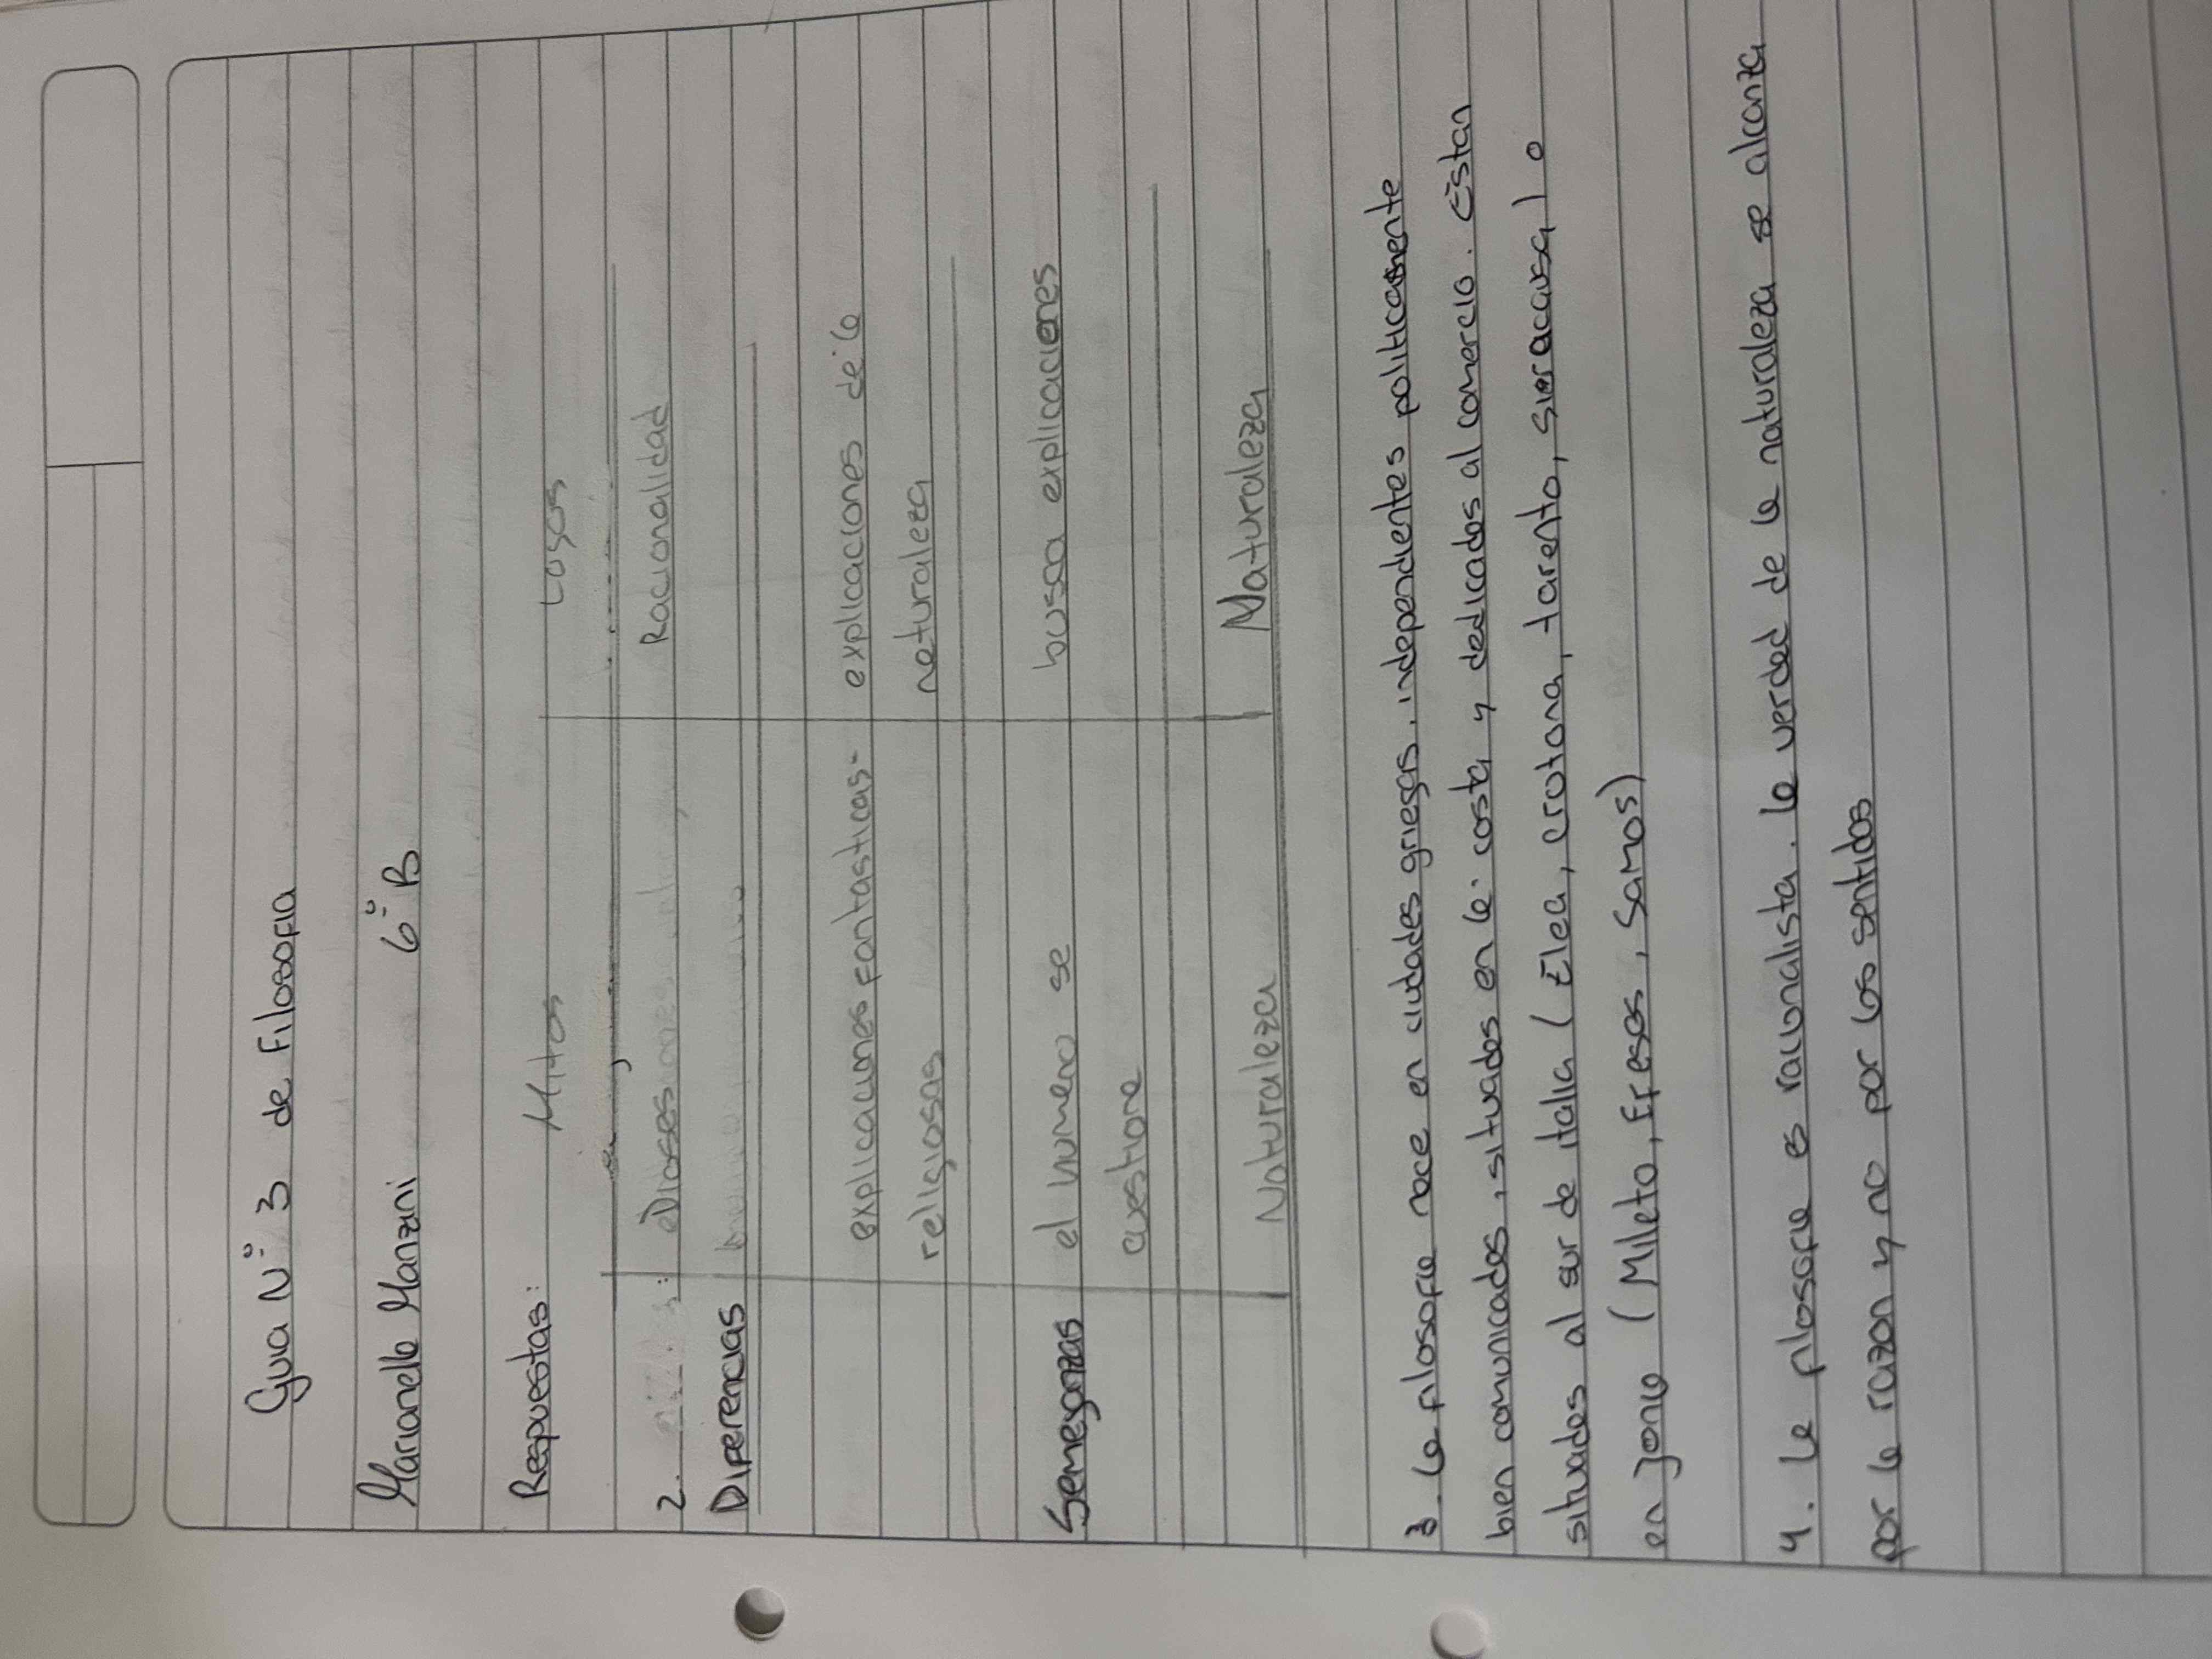 Guia N° 3 de Filosofia
Marianella Manzini 6° B
Respuestas:
Mitos Logos
2. Dioses Racionalidad
Diferencias
explicaciones fantasticas- explicaciones de la
religiosas naturaleza
Semejanzas el humano se busca explicaciones
cuestiona
Naturaleza Naturaleza
3. la filosofia nace en ciudades griegas, independientes politicamente
bien comunicados, situados en la costa y dedicados al comercio. Estan
situados al sur de italia (Elea, crotona, tarento, siracausa) o
en Jonia (Mileto, Efeso, Samos)
4. la filosofia es racionalista. la verdad de la naturaleza se alcanza
por la razon y no por los sentidos